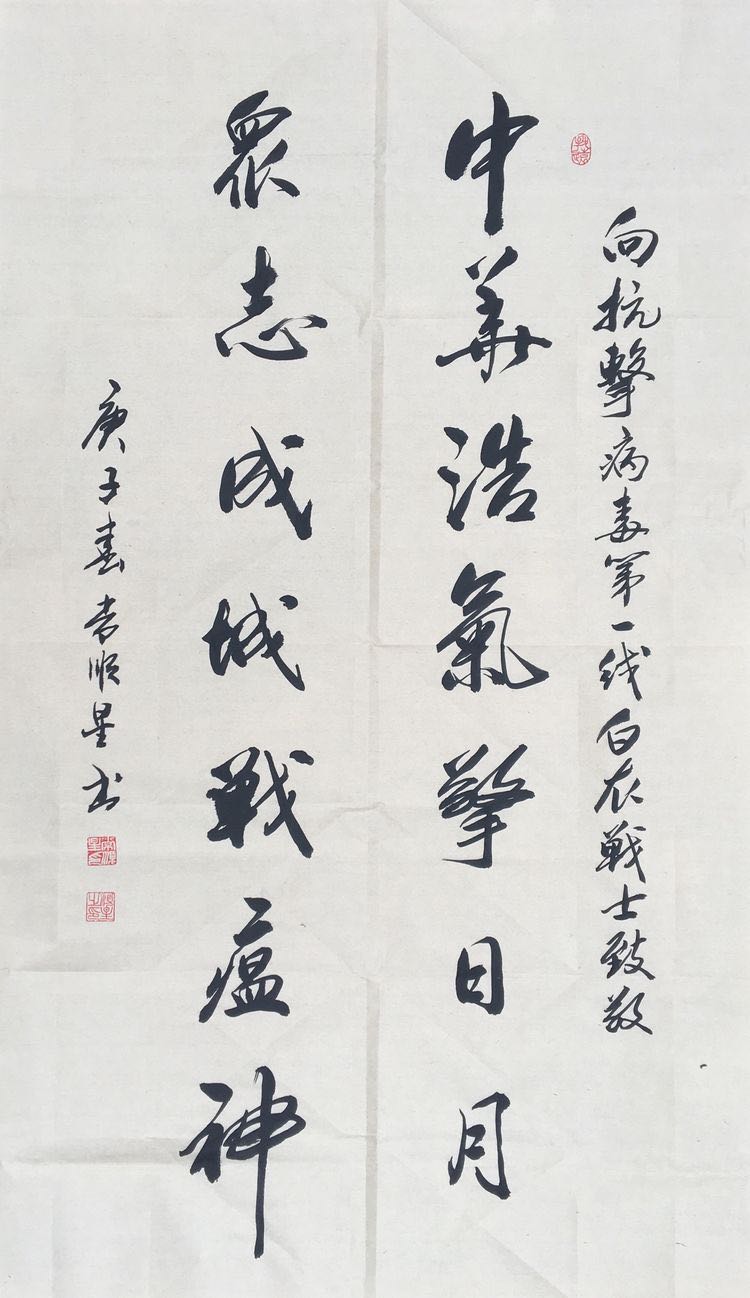 向抗擊病毒第一线白衣戰士致敬
中華浩氣擎日月
眾志成城戰瘟神
庚子春 順星书